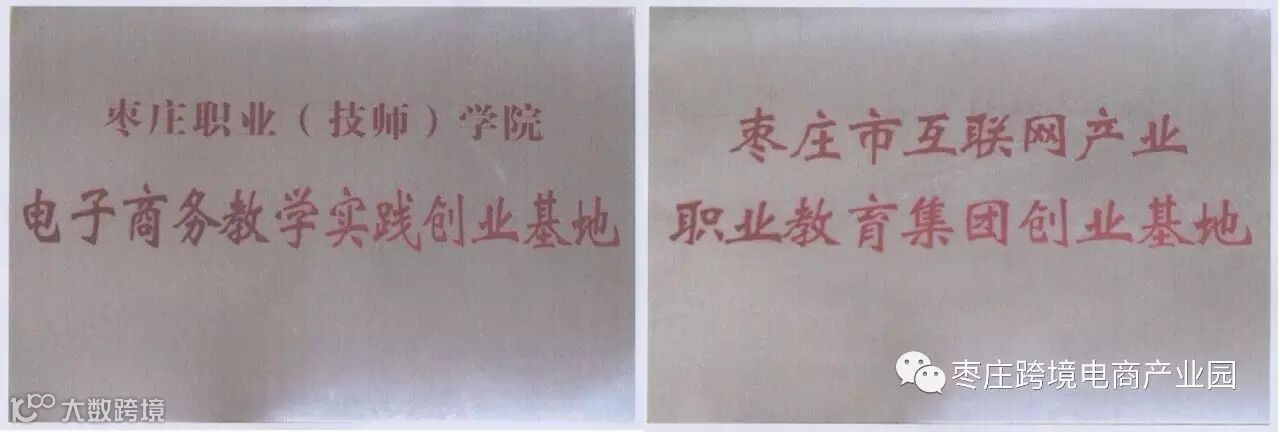 枣庄职业（技师）学院
电子商务教学实践创业基地
枣庄市互联网产业
职业教育集团创业基地
枣庄跨境电商产业园
大数跨境